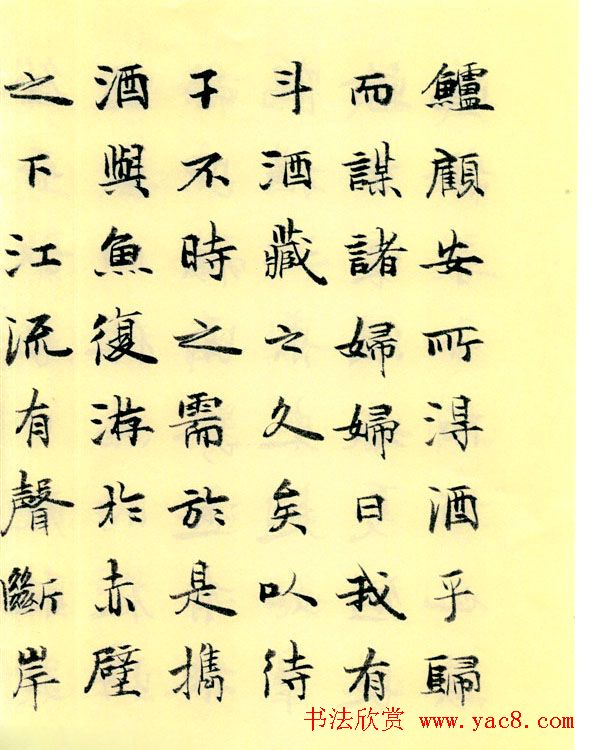 鱸顧安所淂酒乎歸
而謀諸婦婦曰我有
斗酒藏之久矣以待
子不時之需於是攜
酒與魚復游於赤壁
之下江流有聲斷岸
书法欣赏 www.yac8.com